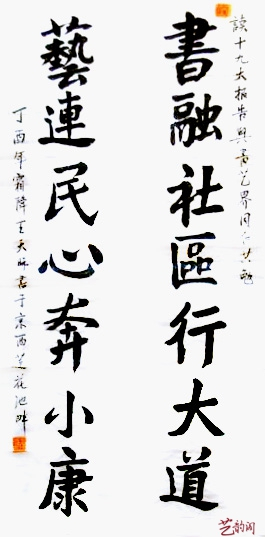 讀十九大报告與書艺界同仁共勉
書融社區行大道
藝連民心奔小康
丁酉年霜降王天師書于京西莲花池畔
艺韵阁